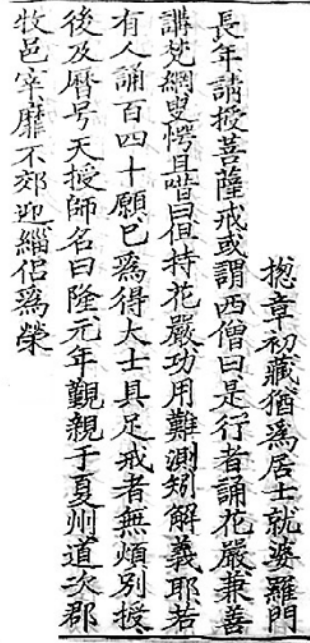 揔章初藏猶爲居士就婆羅門
長年請授菩薩戒或謂西僧曰是行者誦花嚴兼善
講梵網叟愕且喈曰但持花嚴功用難測矧解義耶若
有人誦百四十願已爲得大士具足戒者無煩別授
後及曆号天授師名曰隆元年覲親于夏州道次郡
牧邑宰靡不郊迎緇侶爲榮